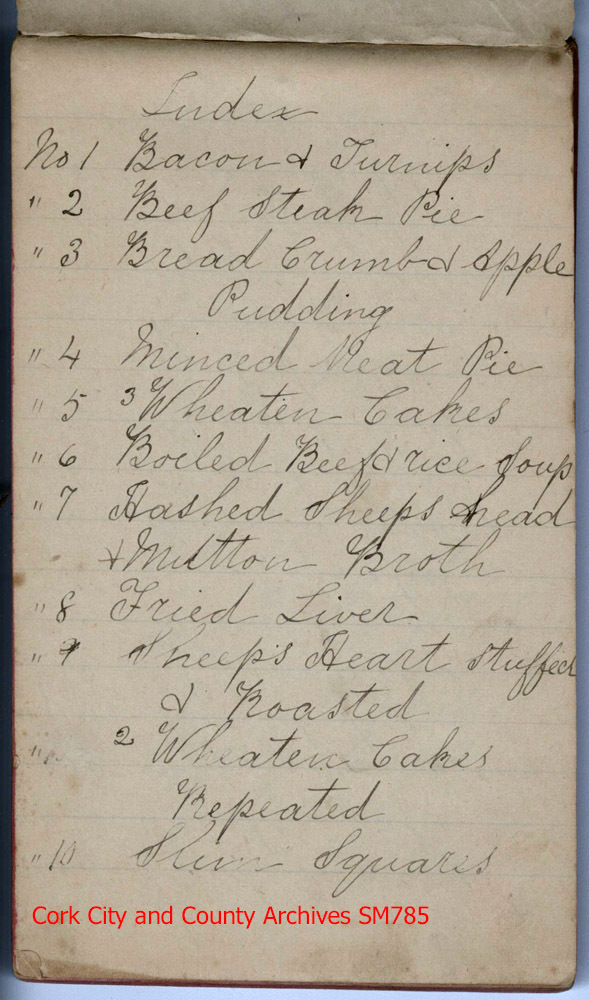 Index
No 1 Bacon & Turnips
" 2 Beef Steak Pie
" 3 Bread Crumb & Apple
Pudding
" 4 Minced Meat Pie
" 5 3 Wheaten Cakes
" 6 Boiled Beef & rice Soup
" 7 Hashed Sheeps head
& Mutton Broth
" 8 Fried Liver
" 9 Sheep's Heart stuffed
& Roasted
" 2 Wheaten Cakes
Repeated
" 10 Slim Squares
Cork City and County Archives SM785